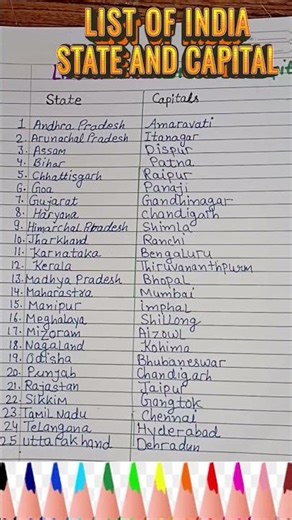 LIST OF INDIA
STATE AND CAPITAL
State Capitals
1. Andhra Pradesh Amaravati
2. Arunachal Pradesh Itanagar
3. Assam Dispur
4. Bihar Patna
5. Chhattisgarh Raipur
6. Goa Panaji
7. Gujarat Gandhinagar
8. Haryana Chandigarh
9. Himarchal Pradesh Shimla
10. Jharkhand Ranchi
11. Karnataka Bengaluru
12. Kerala Thiruvananthpurm
13. Madhya Pradesh Bhopal
14. Maharastra Mumbai
15. Manipur imphal
16. Meghalaya Shillong
17. Mizoram Aizowl
18. Nagaland Kohima
19. Odisha Bhubaneswar
20. Punjab Chandigarh
21. Rajastan Jaipur
22. Sikkim Gangtok
23. Tamil Nadu Chennai
24. Telangana Hyderabad
25. uttarakhand Dehradun